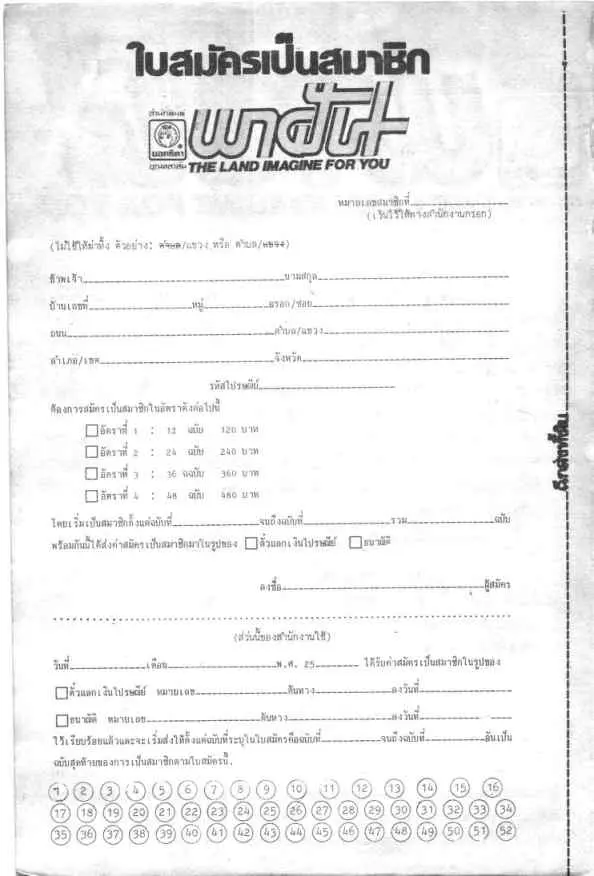 ใบสมัครเป็นสมาชิก
สำนักพิมพ์
พาฝัน
บอคธิดา
THE LAND IMAGINE FOR YOU
หมายเลขสมาชิกที่
(เว้นไว้ให้ทางสำนักงานกรอก)
(ไม่ใช้ให้ฆ่าทิ้ง ตัวอย่าง: ตำบล/แขวง หรือ ตำบล/แขวง)
ข้าพเจ้า นามสกุล
บ้านเลขที่ หมู่ ตรอก/ซอย
ถนน ตำบล/แขวง
อำเภอ/เขต จังหวัด
รหัสไปรษณีย์
ต้องการสมัครเป็นสมาชิกในอัตราดังต่อไปนี้
อัตราที่ 1 : 12 ฉบับ 120 บาท
อัตราที่ 2 : 24 ฉบับ 240 บาท
อัตราที่ 3 : 36 ฉบับ 360 บาท
อัตราที่ 4 : 48 ฉบับ 480 บาท
โดยเริ่มเป็นสมาชิกตั้งแต่ฉบับที่ จนถึงฉบับที่ รวม ฉบับ
พร้อมกันนี้ได้ส่งค่าสมัครเป็นสมาชิกมาในรูปของ ตั๋วแลกเงินไปรษณีย์ ธนาณัติ
ลงชื่อ ผู้สมัคร
(ส่วนนี้ของสำนักงานใช้)
วันที่ เดือน พ.ศ. 25 ได้รับค่าสมัครเป็นสมาชิกในรูปของ
ตั๋วแลกเงินไปรษณีย์ หมายเลข ต้นทาง ลงวันที่
ธนาณัติ หมายเลข ต้นทาง ลงวันที่
ไว้เรียบร้อยแล้วและจะเริ่มส่งให้ตั้งแต่ฉบับที่ระบุในใบสมัครคือฉบับที่ จนถึงฉบับที่ อันเป็น
ฉบับสุดท้ายของการเป็นสมาชิกตามใบสมัครนี้.
1 2 3 4 5 6 7 8 9 10 11 12 13 14 15 16
17 18 19 20 21 22 23 24 25 26 27 28 29 30 31 32 33 34
35 36 37 38 39 40 41 42 43 44 45 46 47 48 49 50 51 52